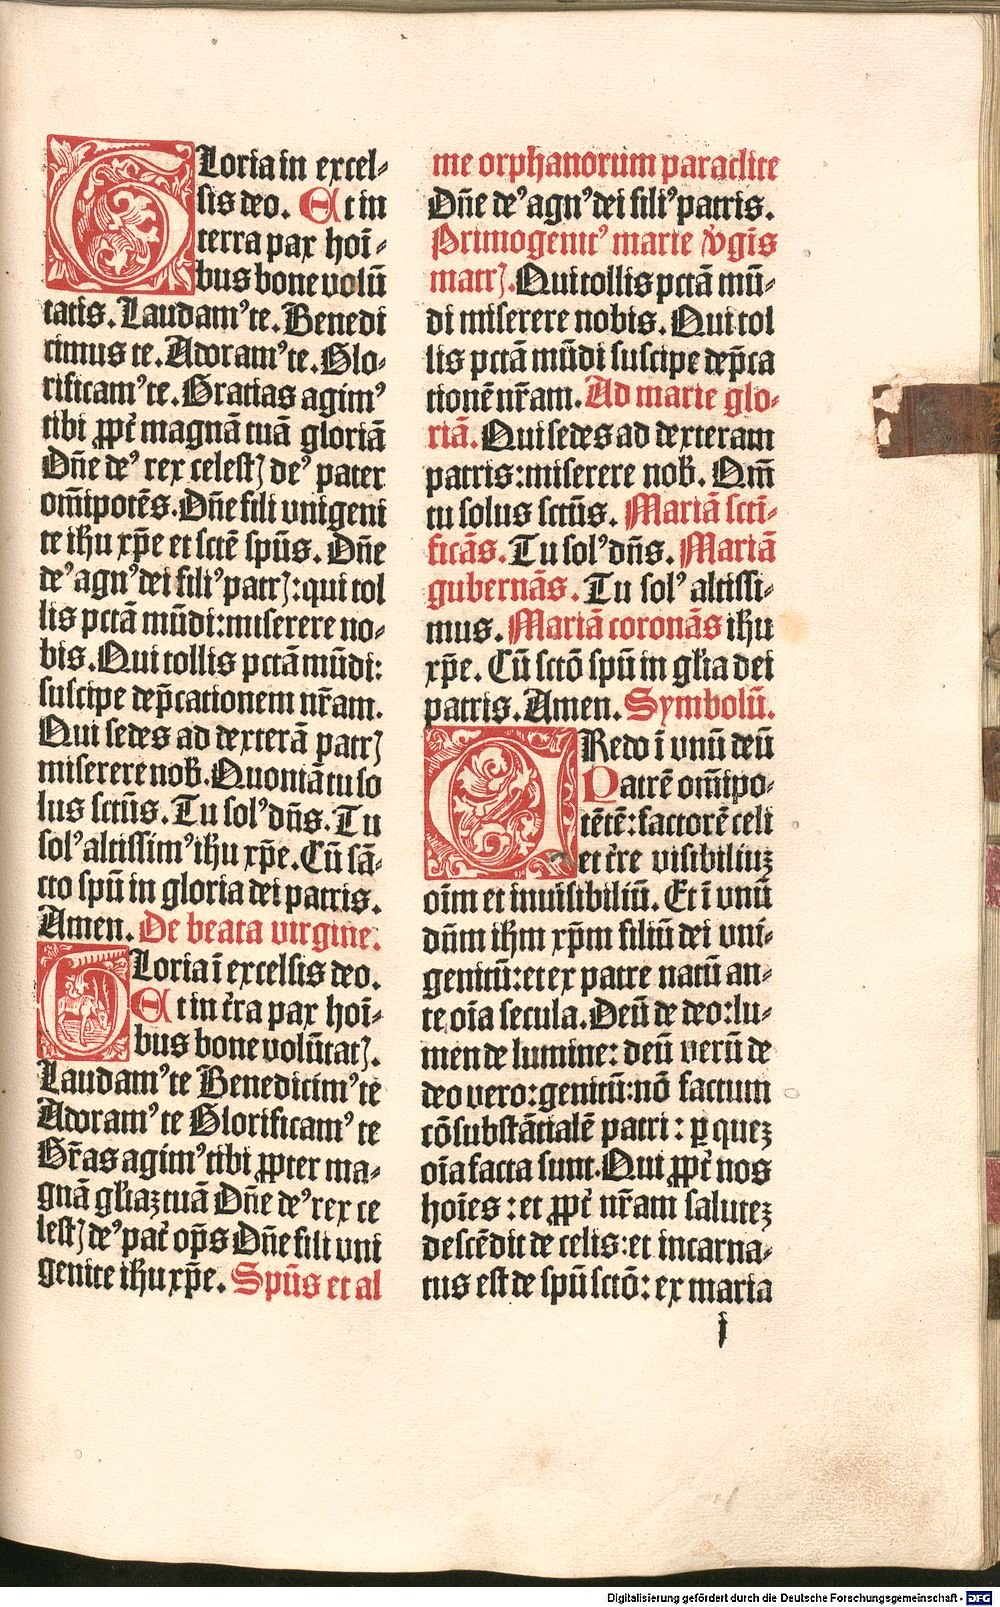 GLoria in excel⸗
sis deo. Et in
terra pax hoī⸗
bus bone volū
tatis. Laudamꝰ te. Benedi
cimus te. Adoramꝰ te. Glo⸗
rificamꝰ te. Gratias agimꝰ
tibi ꝓpt̄ magnā tuā gloriā
Dn̄e deꝰ rex celestꝭ deꝰ pater
om̄ipotēs. Dn̄e fili unigeni
te ih̄u xp̄e et sctē spūs. Dn̄e
deꝰ agnꝰ dei filiꝰ patrꝭ: qui tol
lis pctā mūdi: miserere no⸗
bis. Qui tollis pctā mūdi:
suscipe dep̄cationem nr̄am.
Qui sedes ad dexterā patrꝭ
miserere nob̄. Quoniā tu so
lus sctūs. Tu solꝰ dn̄s. Tu
solꝰ altissimꝰ ih̄u xp̄e. Cū sā⸗
cto spū in gloria dei patris.
Amen. De beata virgine.
GLoria ī excelsis deo.
Et in t̄ra pax hoī⸗
bus bone volūtatꝭ.
Laudamꝰ te Benedicimꝰ te
Adoramꝰ te Glorificamꝰ te
Gr̄as agimꝰ tibi ꝓpter ma⸗
gnā gl̄iaꝫ tuā Dn̄e deꝰ rex ce
lestꝭ deꝰ pat̄ op̄s Dn̄e fili uni
genite ih̄u xp̄e. Spūs et al
me orphanorum paraclite
Dn̄e deꝰ agnꝰ dei filiꝰ patris.
Primogenitꝰ marie v̄gīs
matrꝭ. Qui tollis pctā mū⸗
di miserere nobis. Qui tol
lis pctā mūdi suscipe dep̄ca
tionē nr̄am. Ad marie glo⸗
riā. Qui sedes ad dexteram
patris: miserere nob̄. Qm̄
tu solus sctūs. Mariā scti⸗
ficās. Tu solꝰ dn̄s. Mariā
gubernās. Tu solꝰ altissi⸗
mus. Mariā coronās ih̄u
xp̄e. Cū sctō spū in gl̄ia dei
patris. Amen. Symbolū.
CRedo ī unū deū
Patrē om̄ipo⸗
tētē: factorē celi
et t̄re visibiliuꝫ
oīm et invisibiliū. Et ī unū
dn̄m ih̄m xp̄m filiū dei uni⸗
genitū: et ex patre natū an⸗
te oīa secula. Deū de deo: lu⸗
men de lumine: deū verū de
deo vero: genitū: nō factum
cōsubstātialē patri: ꝑ queꝫ
oīa facta sunt. Qui ꝓpt̄ nos
hoīes: et ꝓpt̄ nr̄am saluteꝫ
descēdit de celis: et incarna⸗
tus est de spū sctō: ex maria
j
Digitalisierung gefördert durch die Deutsche Forschungsgemeinschaft - DFG